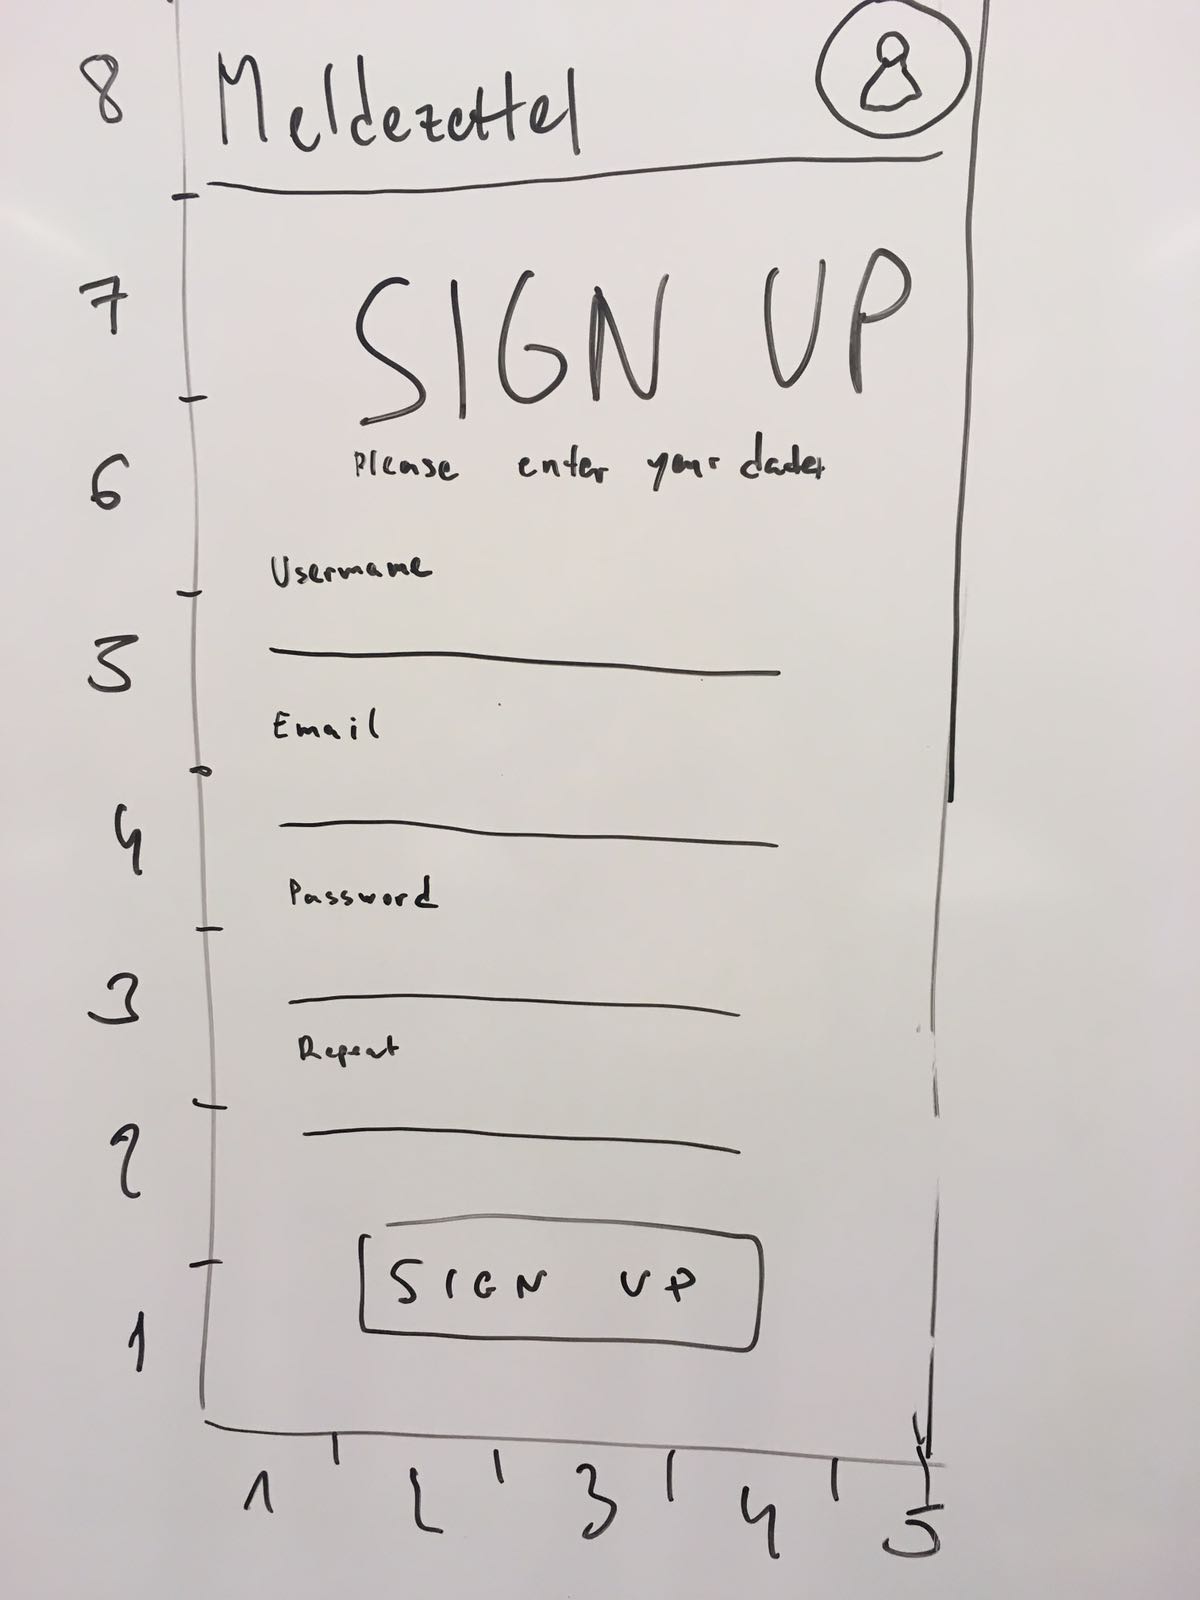 8 Meldezettel
7 SIGN UP
6 Please enter your
Username
5
Email
4
Password
3
Repeat
2
SIGN UP
1
1 2 3 4 5